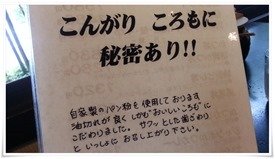 こんがり ころもに
秘密あり!!
自家製のパン粉を使用しております
油切れが良く しかも"おいしいころも"に
こだわりました。サクッとした歯ざわり
と いっしょに お召し上がり下さい。